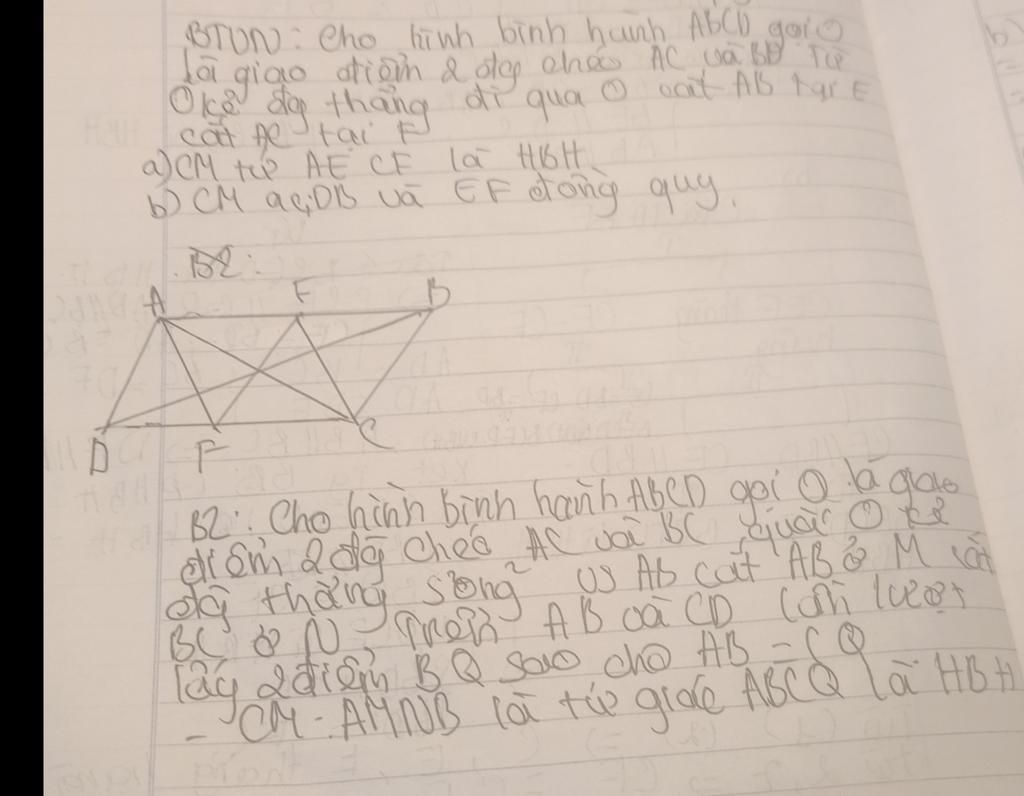 BTVN: Cho hình bình hành ABCD gọi O
là giao điểm 2 đg chéo AC và BD Từ
O kẻ đg thẳng đi qua O cắt AB tại E
cắt DC tại F
a) CM tứ AE CF là HBH
b) CM ac, DB và EF đồng quy.
B2:
A E B
D F C
B2: Cho hình bình hành ABCD gọi O là giao
điểm 2 đg chéo AC và BC, qua O kẻ
đg thẳng song² vs AB cắt AB ở M cắt
BC ở N. Trên AB và CD lần lượt
lấy 2 điểm B Q sao cho AB = CQ
- CM. AMNB là tứ giác ABCQ là HBH